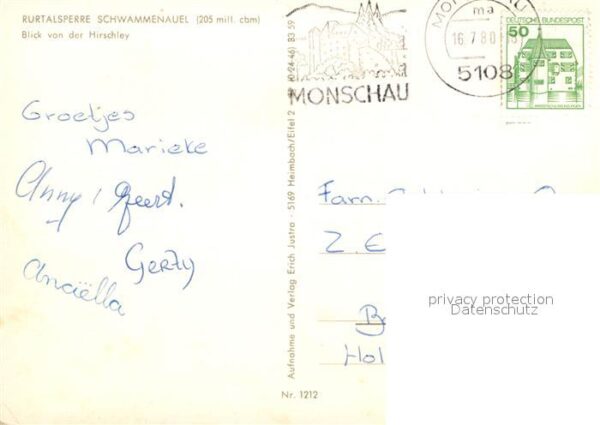 RURTALSPERRE SCHWAMMENAUEL (205 mill. cbm)
Blick von der Hirschley
MONSCHAU
ma
16.7.80
5108
DEUTSCHE BUNDESPOST
50
Groetjes
Marieke
Anny, Geert.
Gerty
Anciëlla
Aufnahme und Verlag Erich Justra · 5169 Heimbach/Eifel 2
Nr. 1212
Fam.
Z.E
Hol
privacy protection
Datenschutz